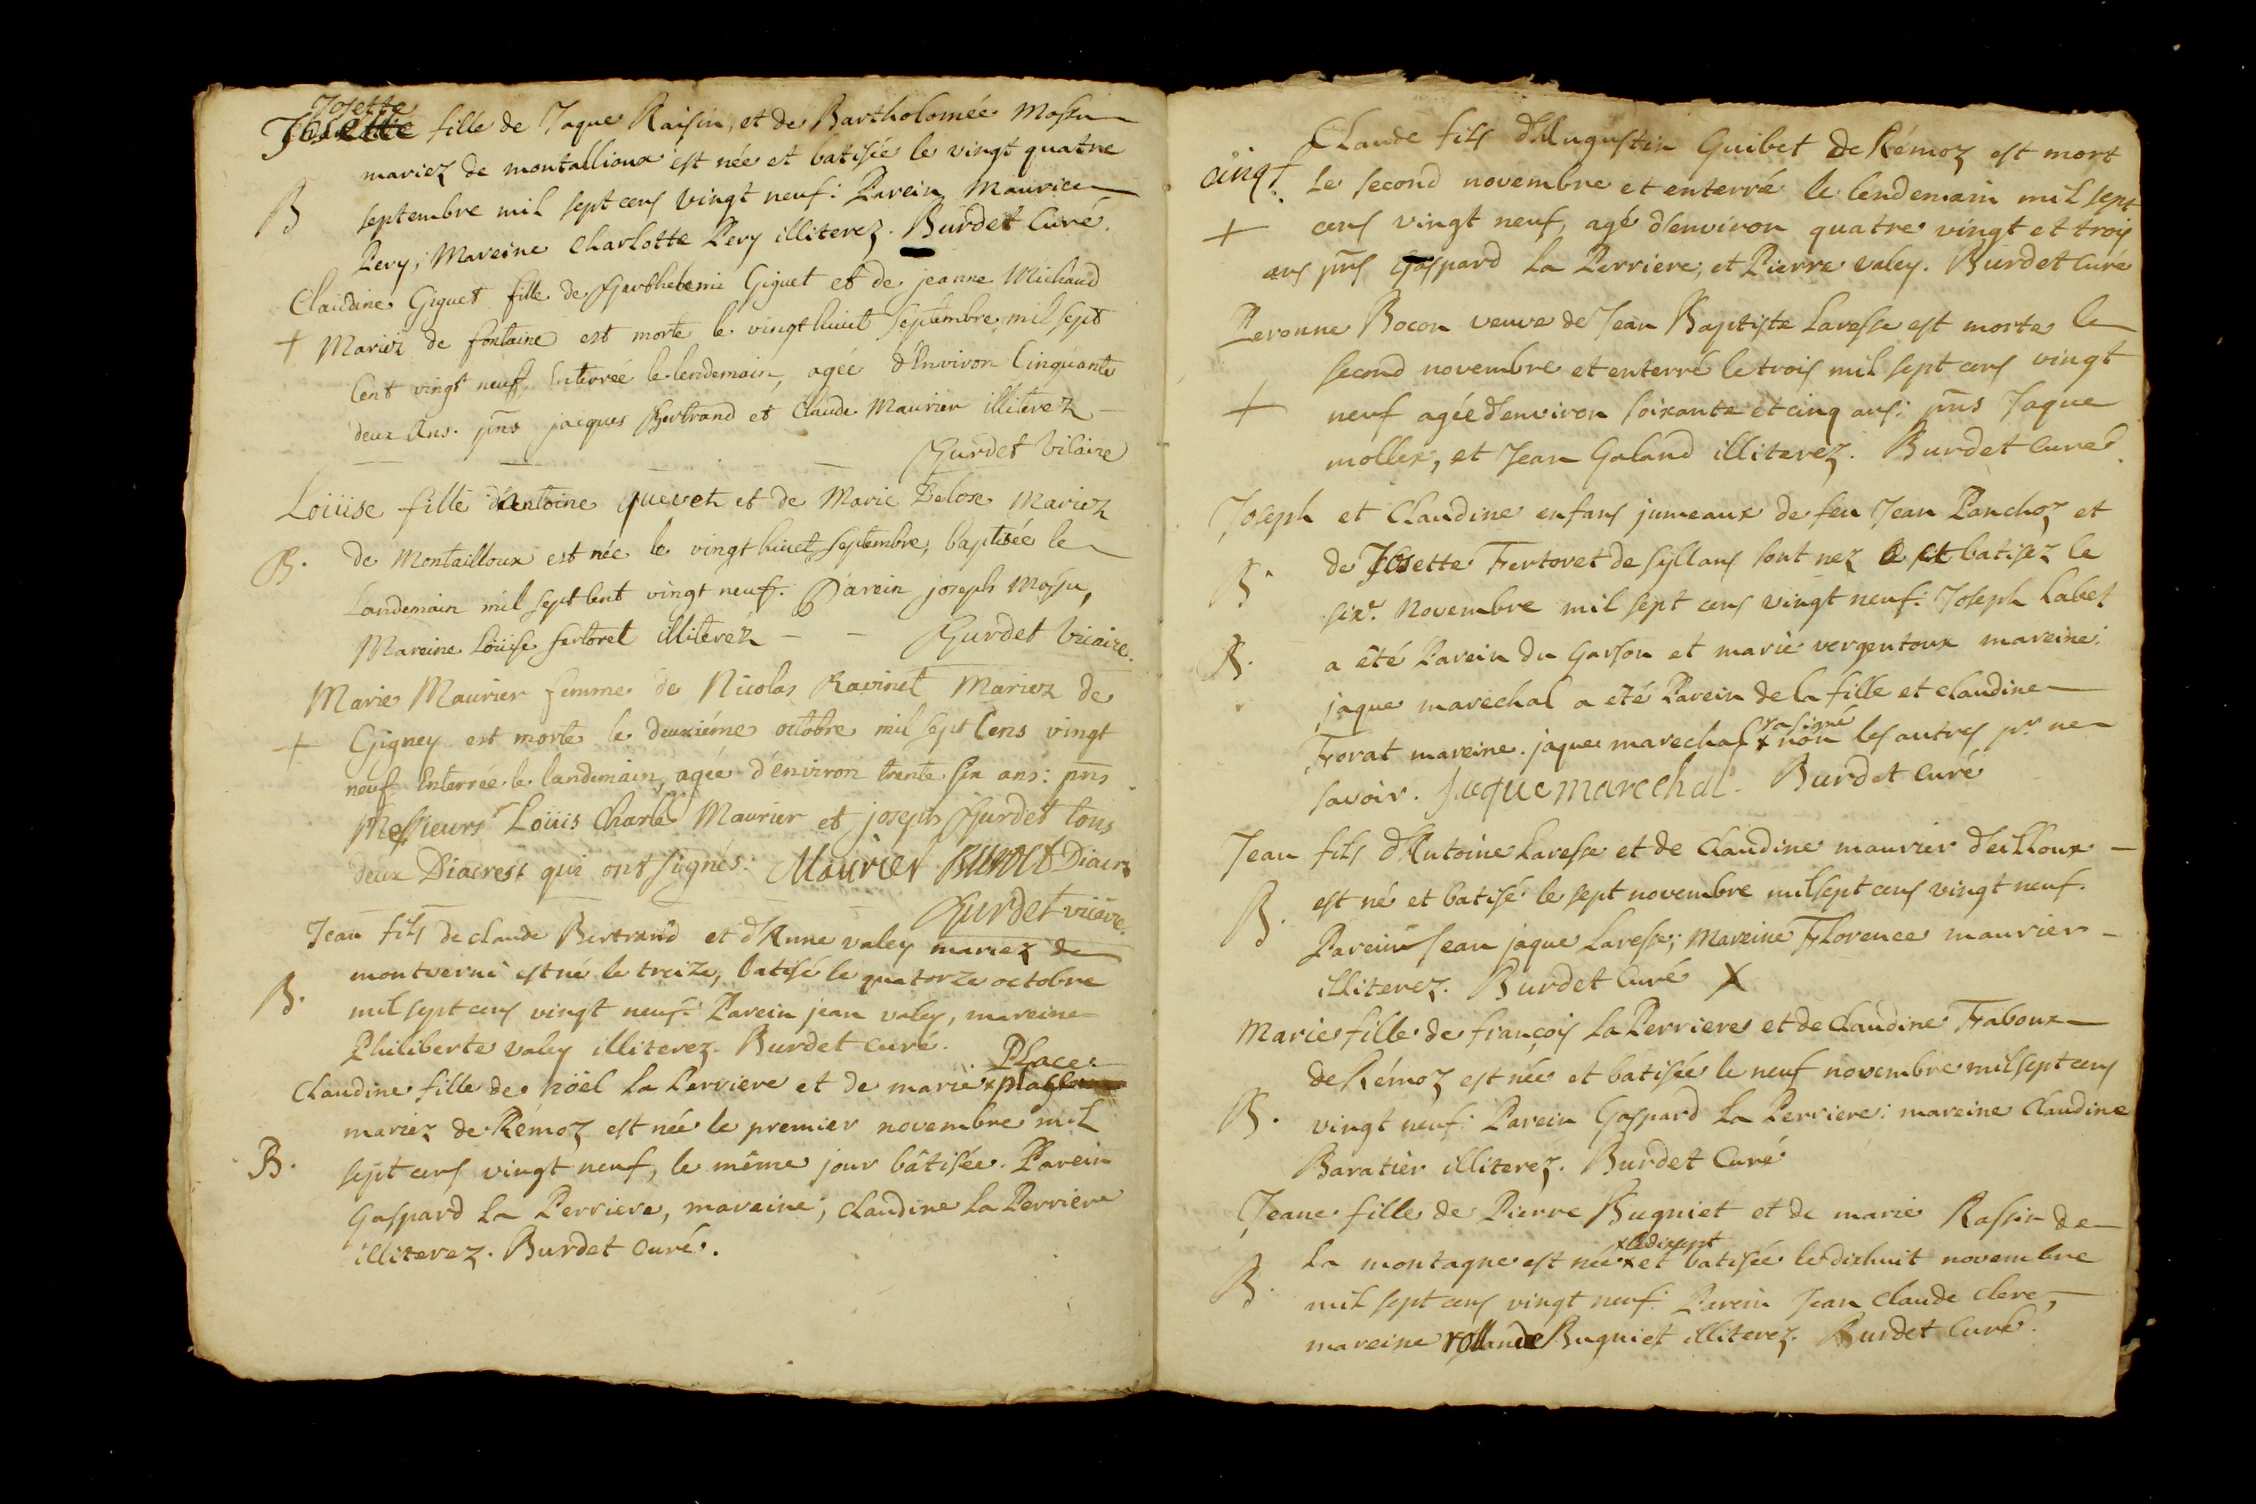 Josette
Josette fille de Jaque Raisin, et de Bartholomée Mossu
mariez de montallioux est née et batisée le vingt quatre
B septembre mil sept cens vingt neuf: Parein Maurice
Pery; Mareine Charlotte Pery illiterez. Burdet Curé.
Claudine Giguet fille de Barthelemi Giguet et de jeanne Michaud
+ Mariez de fontaine est morte le vingt huict septembre mil sept
Cent vingt neuf, Enterrée le lendemain, agée d'Environ Cinquante
deux Ans. pñs jacques Bertrand et Claude Maurier illiterez
Burdet Vicaire
Loüise fille d'Antoine et de Marie Mariez
B. de Montailloux est née le vingt huict septembre, baptisée le
Landemain mil sept Cent vingt neuf. Parein joseph Mossu,
Mareine Loüise fertoret illiterez - - Burdet Vicaire.
Marie Maurier femme de Nicolas Ravinet Mariez de
+ Gigney est morte le deuxiéme octobre mil sept Cens vingt
neuf Enterrée le landemain, agée d'environ trente six ans: pñs
Messieurs Loüis Charle Maurier et joseph Burdet tous
deux Diacrest qui ont signés: Maurier Burdet Diacre
Burdet vicaire.
Jean fils de claude Bertrand et d'Anne valey mariez de
montverni est né le treize, batisé le quatorze octobre
B. mil sept cens vingt neuf: Parein jean valey, mareine
Philiberte valey illiterez. Burdet curé.
Place
Claudine fille de noël La Perriere et de marie x
mariez de Rémoz est née le premier novembre mil
B. sept cens vingt neuf, le même jour bâtisée. Parein
Gaspard La Perriere, mareine; Claudine La Perriere
illiterez. Burdet Curé.
Claude fils d'Augustin Guibet de Rémoz est mort
cinqt. Le second novembre et enterré le lendemain mil sept
+ cens vingt neuf, agé d'environ quatre vingt et trois
ans pñs Gaspard La Perriere, et Pierre valey. Burdet Curé
Peronne Bocon veuve de Jean Baptiste Laresse est morte le
second novembre et enterré le trois mil sept cens vingt
+ neuf agée d'environ soixante et cinq ans: pñs Jaque
mollex, et Jean Galand illiterez. Burdet curé.
Joseph et Claudine enfans jumeaux de feu Jean Panchoz et
B. de Josette Fertoret de syllans sont nez et batisez le
sixe. Novembre mil sept cens vingt neuf: Joseph Labet
B. a été Parein du Garson et marie vergentoux mareine:
jaque marechal a eté Parein de la fille et claudine
ra signé
Forat mareine. jaque marechal x non les autres pr. ne
savoir. Jaque marechal. Burdet Curé
Jean fils d'Antoine Laresse et de Claudine maurier d'eilloux -
B. est né et batisé le sept novembre mil sept cens vingt neuf.
Parein Jean jaque Laresse; Mareine Florence maurier -
illiterez. Burdet Curé X
Marie fille de françois La Perriere et de Claudine Traboux
de Rémoz est née et batisée le neuf novembre mil sept cens
B. vingt neuf: Parein Gaspard La Perriere: mareine Claudine
Baratier illiterez. Burdet Curé
Jeane fille de Pierre Bugniet et de marie Rassin de
x le dixsept
La montagne est née x et batisée le dixhuit novembre
B. mil sept cens vingt neuf: Parein Jean Claude Clere,
mareine rollande Bugniet illiterez. Burdet Curé.